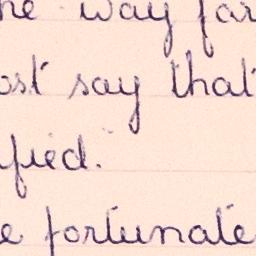 he way far
ost say that
fied.
e fortunate